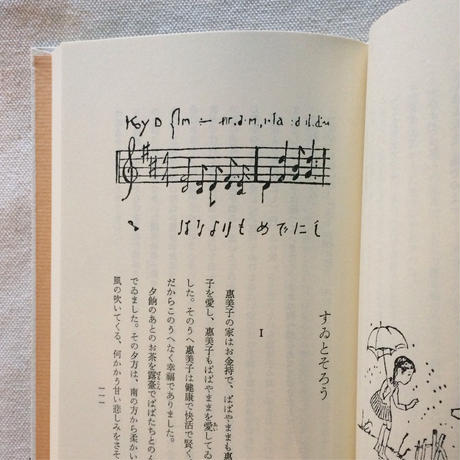 Key D
はなよりも めでにし
すゐとそろう
I
惠美子の家はお金持で、ぱぱやままも惠美
子を愛し、惠美子もぱぱやままを愛してゐ
した。そのうへ惠美子は健康で快活で賢く、
だからこのうへなく幸福でありました。
夕餉のあとのお茶を露臺でぱぱたちとのん
でゐました。その夕方は、南の方から柔かい
風の吹いてくる、何かかう甘い悲しみをさそ
一一一